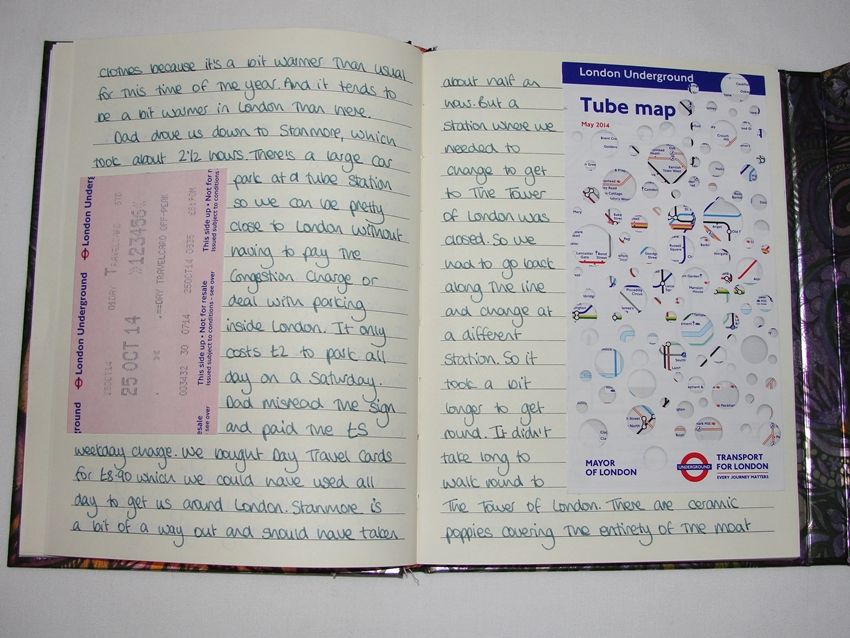 clothes because it's a bit warmer than usual
for this time of the year. And it tends to
be a bit warmer in London than here.
Dad drove us down to Stanmore, which
took about 2½ hours. There's a large car
park at a tube station
so we can be pretty
close to London without
having to pay the
Congestion Charge or
deal with parking
inside London. It only
costs £2 to park all
day on a Saturday.
Dad misread the sign
and paid the £5
weekday charge. We bought Day Travel Cards
for £8.90 which we could have used all
day to get us around London. Stanmore is
a bit of a way out and should have taken
London Underground
London Underground
This side up • Not for resale
Issued subject to conditions - see over
25 OCT 14
»123456«
TRAVELCARD OFF-PEAK
003432 30 0714 25OCT14 0935
about half an
hour. But a
station where we
needed to
change to get
to The Tower
of London was
closed. So we
had to go back
along the line
and change at
a different
station. So it
took a bit
longer to get
round. It didn't
take long to
walk round to
The Tower of London. There are ceramic
poppies covering the entirety of the moat
London Underground
Tube map
May 2014
MAYOR
OF LONDON
UNDERGROUND
TRANSPORT
FOR LONDON
EVERY JOURNEY MATTERS